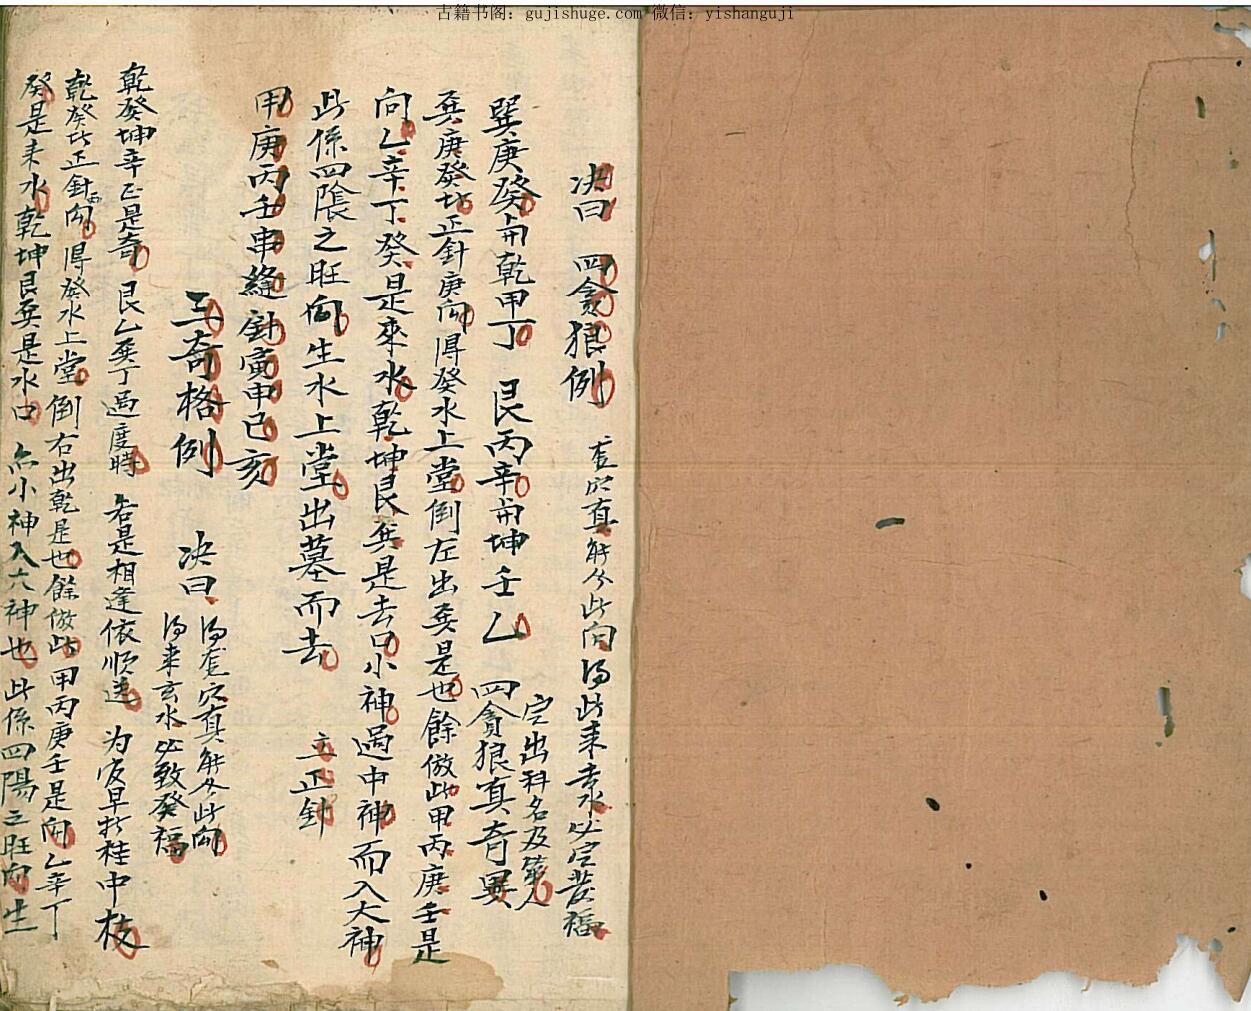 古籍书阁：gujishuge.com 微信：yishanguji
决曰 四貪狼例 查穴真觧分此向 得此来去水必定发福
巽庚癸舟乾甲丁 艮丙辛舟坤壬乙 四貪狼真奇異
定出科名及第人
巽庚癸如正針庚向 得癸水上堂倒左出巽是也 餘倣此 甲丙庚壬是
向乙辛丁癸是來水 乾坤艮巽是去口 小神過中神而入大神
此係四陰之旺向 生水上堂出墓而去 立正針
用庚丙壬串縫針 寅申巳亥
三奇格例 决曰
得查穴真觧分此向
得来玄水必致癸福
乾癸坤辛正是奇 艮乙巽丁過度時 若是相逢依順逆 为官早折桂中枝
乾癸比正針丙向 得癸水上堂倒右出乾是也 餘倣此 甲丙庚壬是向 乙辛丁
癸是来水 乾坤艮巽是水口 尒小神入六神也 此係四陽立旺向生